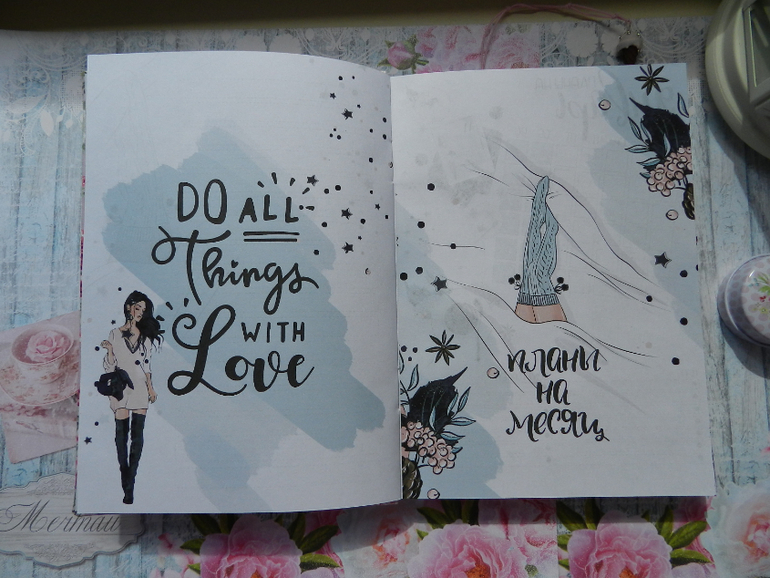 DO ALL
Things
WITH
Love
плани
на
месяц
Мечтай